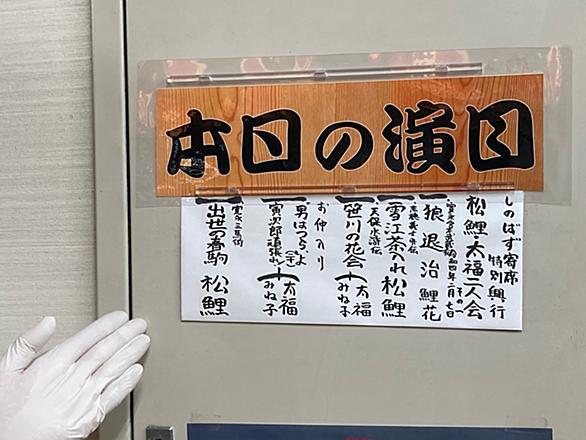 本日の演目
しのばず寄席
特別興行
松鯉太福二人会
その一
令和四年二月七日
一 狼退治 鯉花
赤穂義士外伝
一 雪江茶入れ 松鯉
天保水滸伝
一 笹川の花会 太福
みね子
お仲入り
男はつらいよ
一 寅次郎頑張れ 太福
みね子
寛永三馬術
一 出世の春駒 松鯉